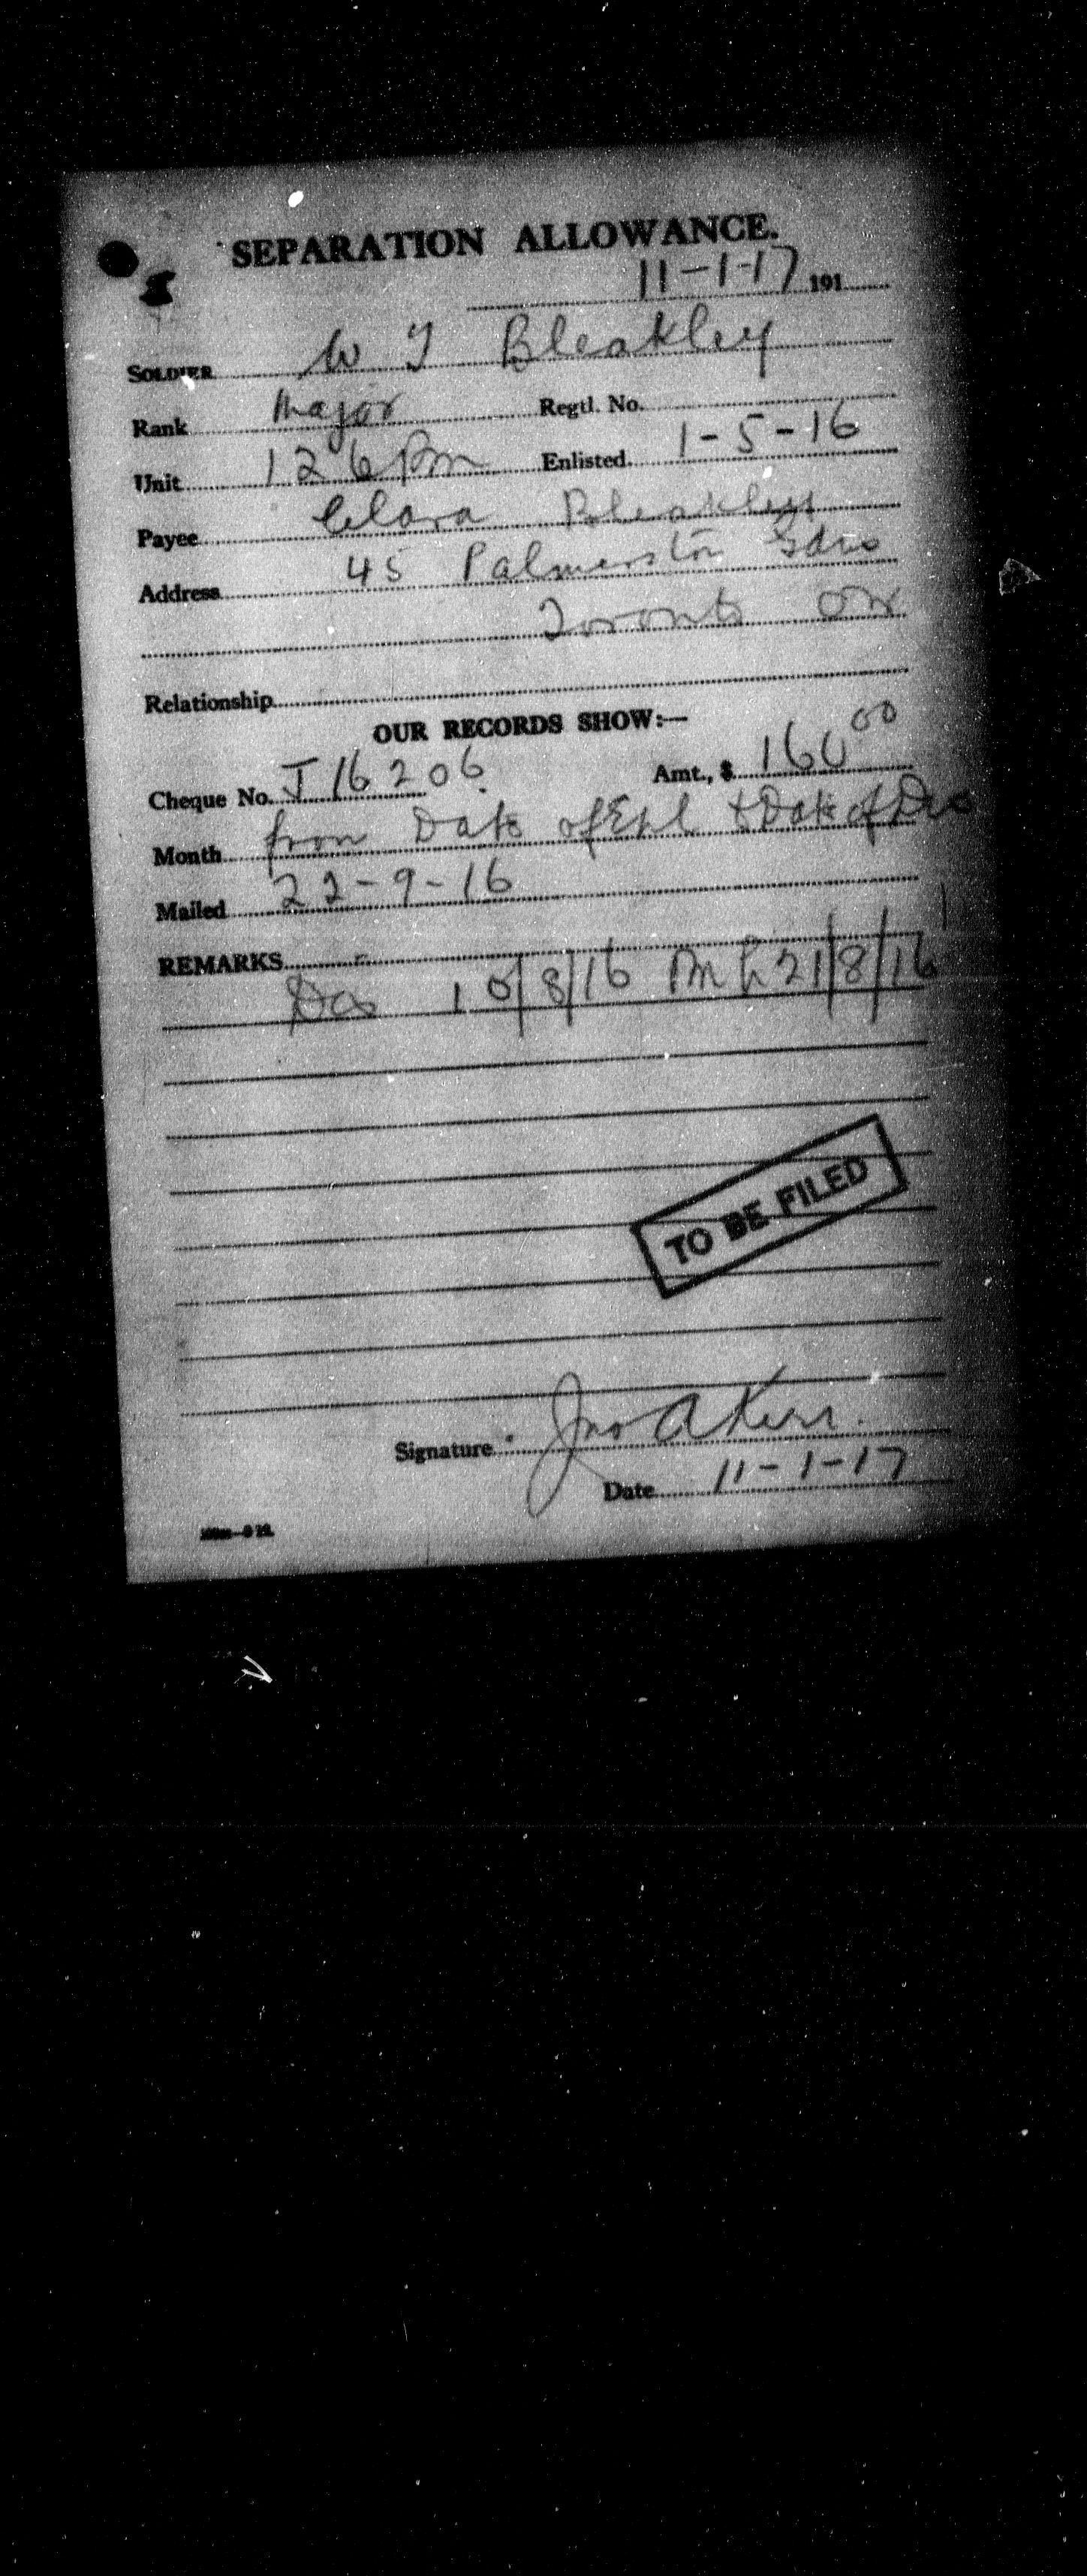 SEPARATION ALLOWANCE.
11-1-17 191
SOLDIER W J Bleakley
Rank Major Regtl. No.
Unit 126 Bn Enlisted 1-5-16
Payee Clara Bleakley
Address 45 Palmerston Gdns
Toronto Ont
Relationship
OUR RECORDS SHOW:—
Cheque No. J16206 Amt., $ 160 00
Month from Date of Enl to Date of Dis
Mailed 22-9-16
REMARKS
Dis 10/8/16 21/8/16
TO BE FILED
Signature Jno A Kerr.
Date 11-1-17